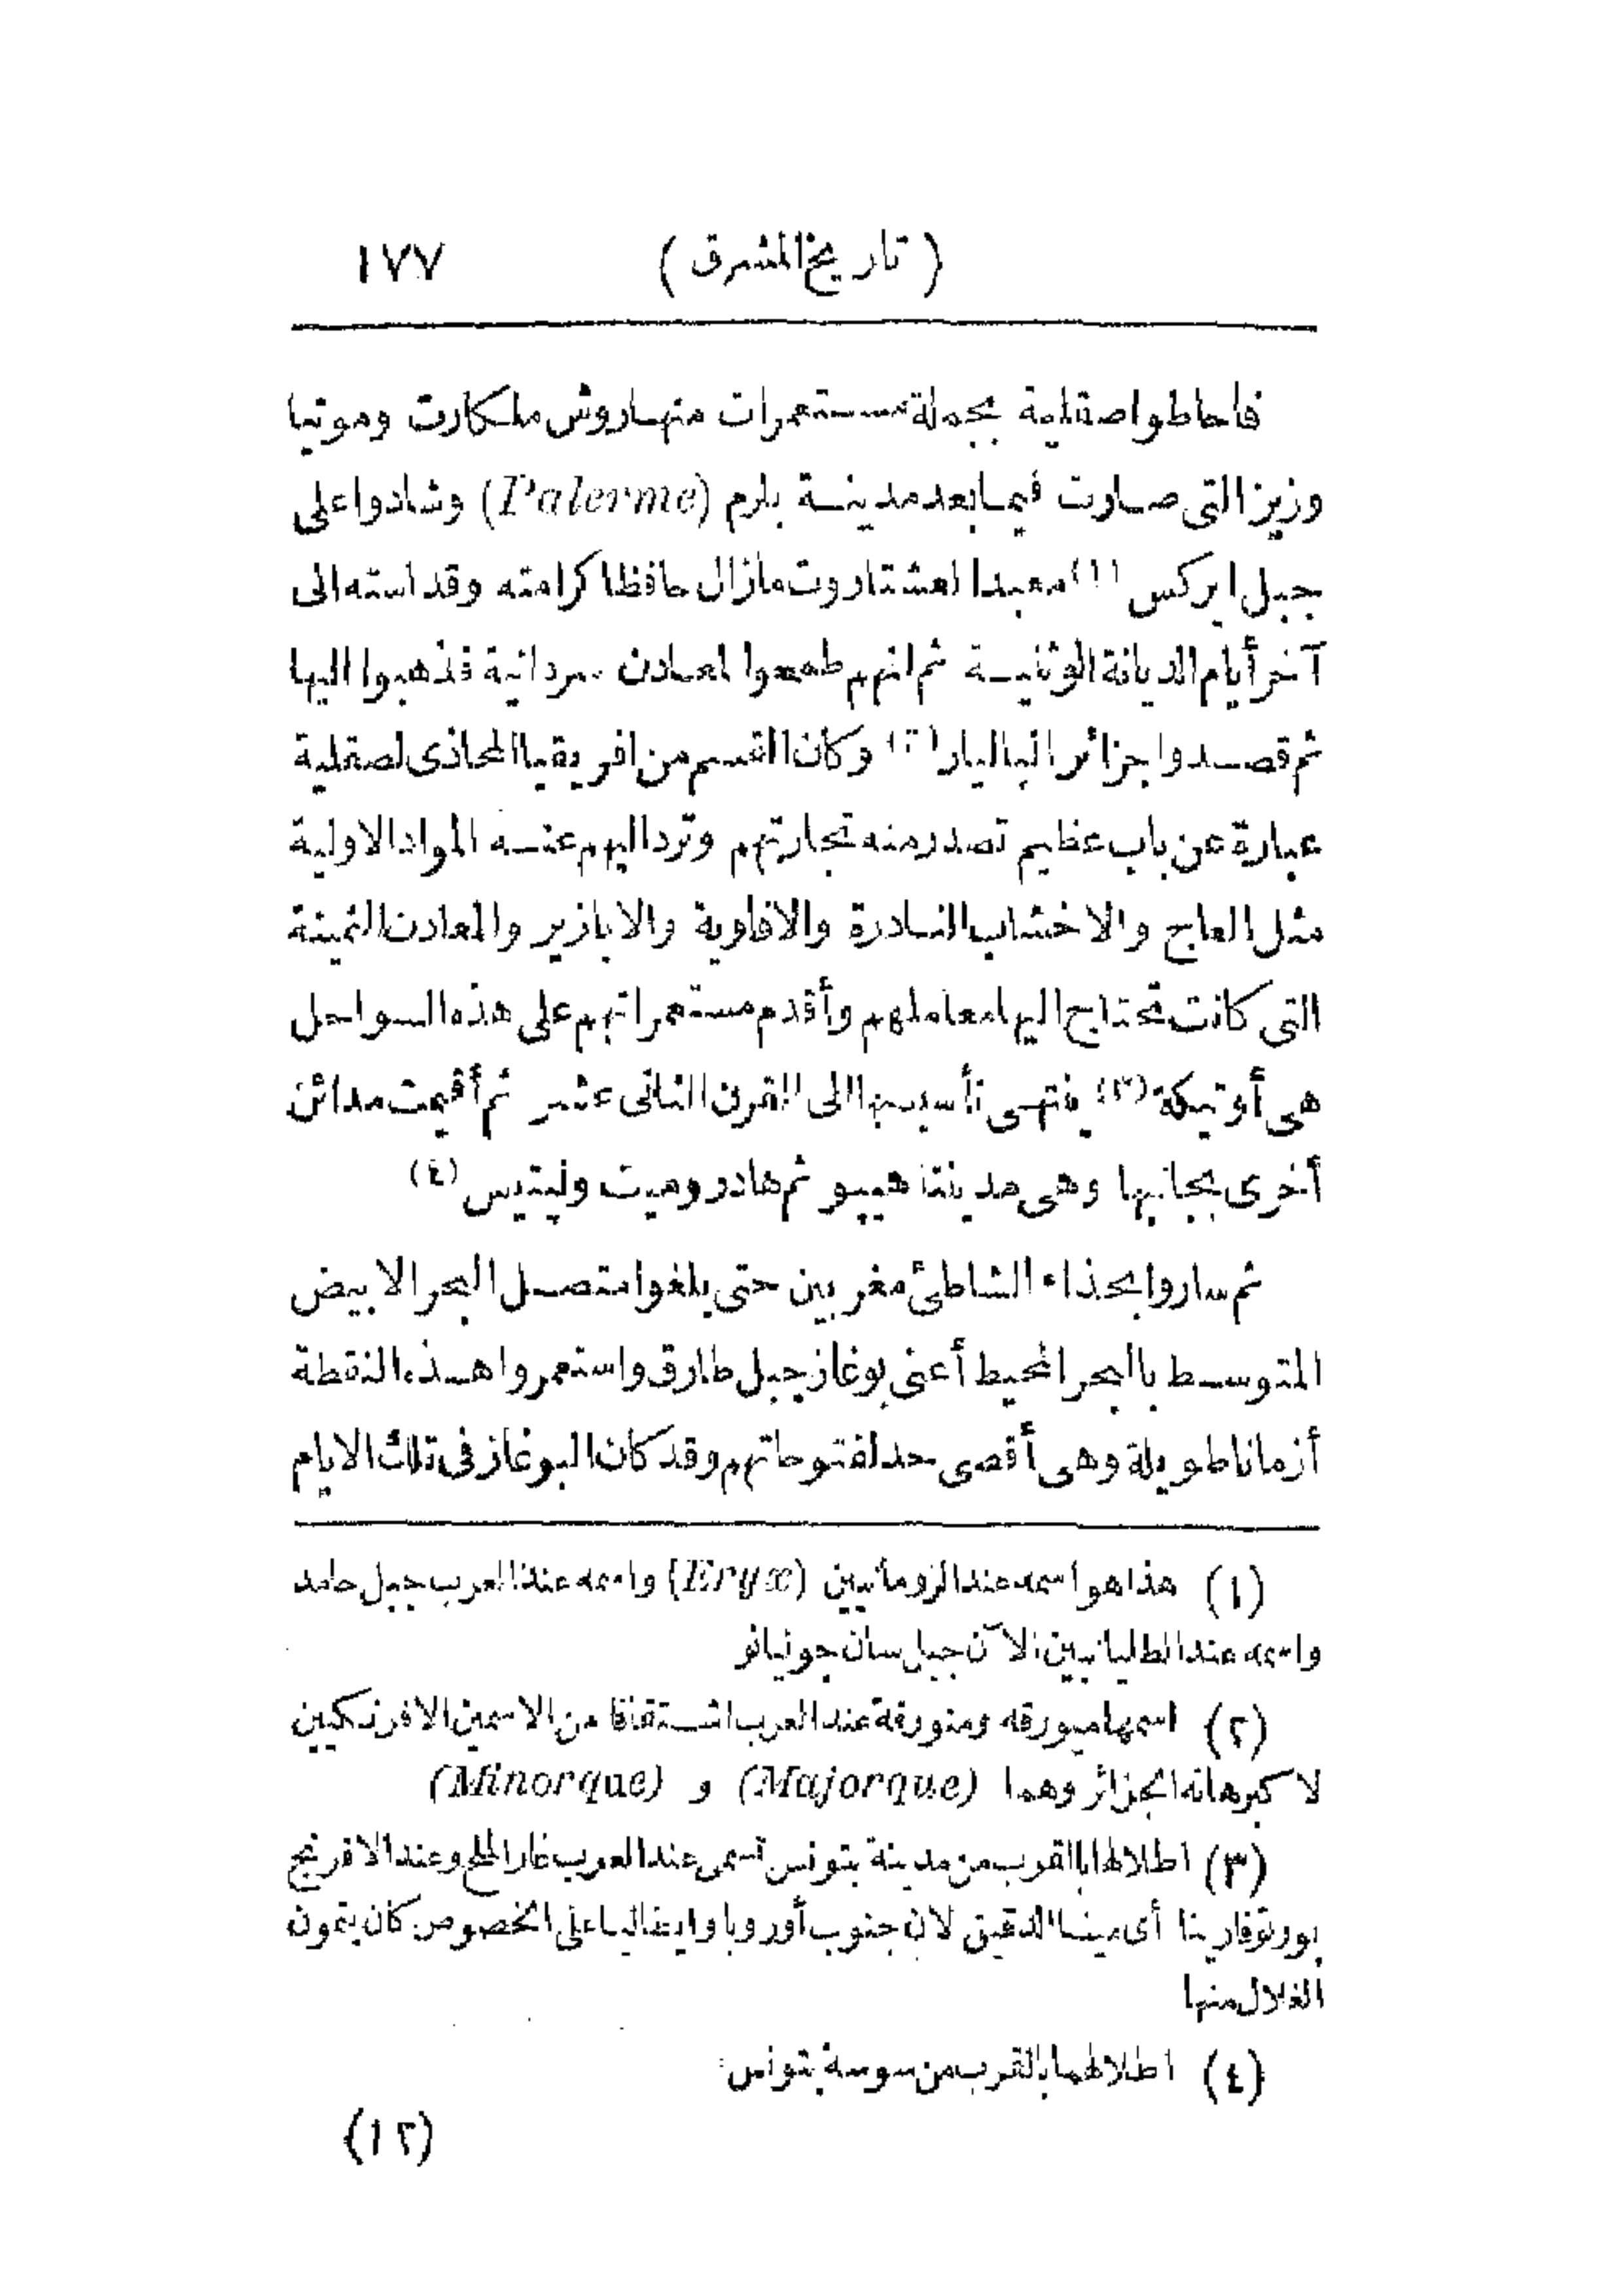 (تاريخ المشرق) ١٧٧
فأحاطوا صقلية بجملة مستعمرات منها روش ملكارت وموتيا
وزيز التى صارت فيما بعد مدينة بلرم (Palerme) وشادوا على
جبل ايركس (١) معبدا لعشتاروت مازال حافظا كرامته وقداسته الى
آخر أيام الديانة الوثنية ثم انهم طمعوا لمعادن سردانية فذهبوا اليها
ثم قصدوا جزائر الباليار (٢) وكان القسم من افريقيا المحاذى لصقلية
عبارة عن باب عظيم تصدر منه تجارتهم وترد اليهم عنه المواد الاولية
مثل العاج والاخشاب النادرة والافاوية والابازير والمعادن الثمينة
التى كانت تحتاج اليها معاملهم وأقدم مستعمراتهم على هذه السواحل
هى أوتيكة (٣) ينتهى تأسيسها الى القرن الثانى عشر ثم أقيمت مدائن
أخرى بجانبها وهى مدينتا هيپو ثم هادروميت ولپتيس (٤)
ثم ساروا بحذاء الشاطئ مغربين حتى بلغوا متصل البحر الابيض
المتوسط بالبحر المحيط أعنى بوغاز جبل طارق واستعمروا هذه النقطة
أزمانا طويلة وهى أقصى حد لفتوحاتهم وقد كان البوغاز فى تلك الايام
(١) هذا هو اسمه عند الرومانيين (Eryx) واسمه عند العرب جبل حامد
واسمه عند الطليانيين الآن جبل سان جوليانو
(٢) اسمها ميورقه ومنورقة عند العرب اشتقاقا من الاسمين الافرنكيين
لاكبر هاته الجزائر وهما (Majorque) و (Minorque)
(٣) اطلالها بالقرب من مدينة بتونس تسمى عند العرب غار الملح وعند الافرنج
بورتوفارينا أى مينا الدقيق لان جنوب أوروبا وايطاليا على الخصوص كان يتمون
الغلال منها
(٤) اطلالهما بالقرب من سوسة بتونس
(١٢)